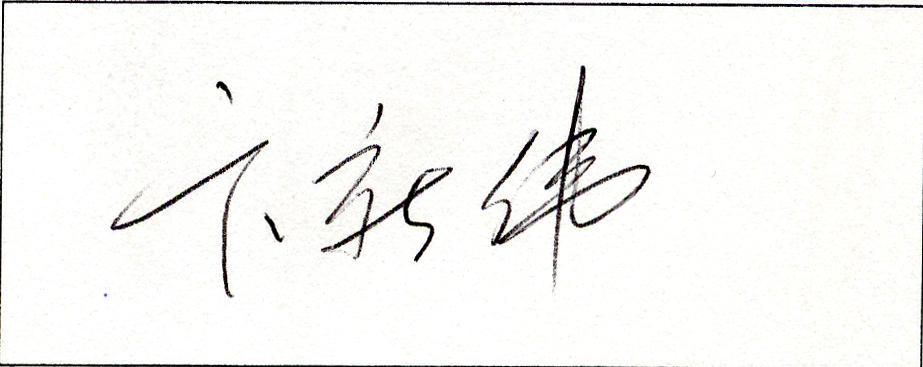 卞新伟